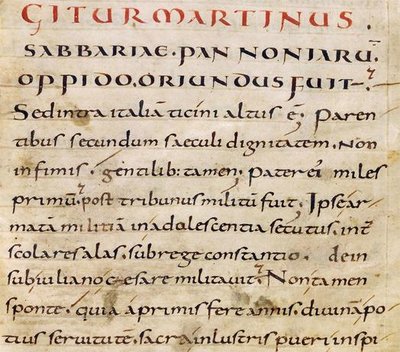 GITUR MARTINUS.
SABBARIAE·PANNONIARŪ
OPPIDO·ORIUNDUS FUIT·
Sed intra italiā ticini altus ē. Paren
tibus secundum saeculi dignitatem. Non
infimis. gentilib: tamen. Pater ei' miles
primū. post tribunus militū fuit. Ipse ar
matā militiā in adolescentia secutus. int̄
scolares alas. sub rege constantio. dein
sub iuliano cęsare militavit. Non tamen
sponte. quia a primis fere annis. divinā po
tius servitutē. sacra inlustris pueri inspi